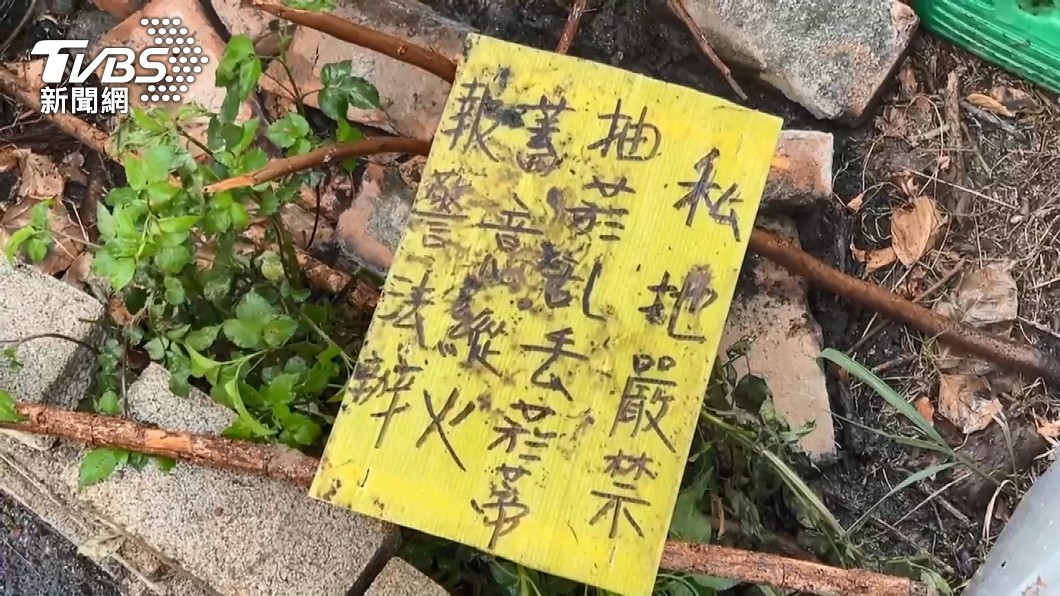 TVBS
新聞網
私地嚴禁
抽菸亂丟菸蒂
蓄意縱火
報警法辦